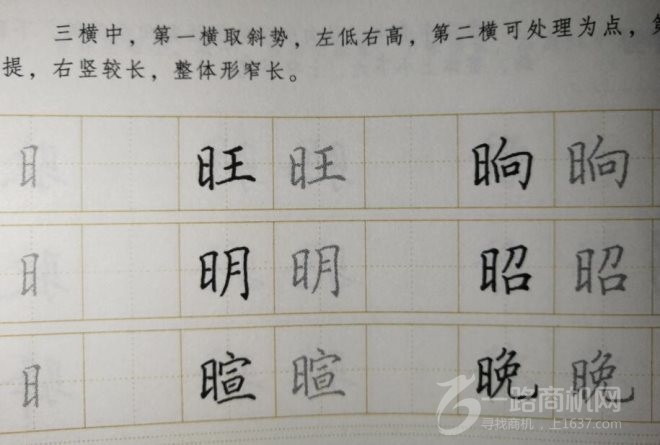 三横中，第一横取斜势，左低右高，第二横可处理为点，
提，右竖较长，整体形窄长。
日 旺 旺 晌 晌
日 明 明 昭 昭
日 暄 暄 晚 晚
一路商机网
寻找商机，上1637.com